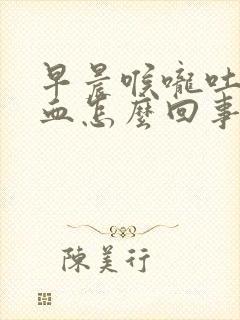 早晨喉嚨吐
血怎麼回事
陳美行